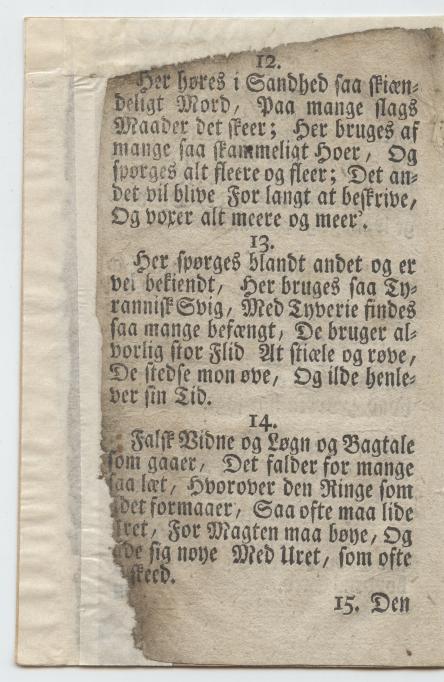 12.
Her høres i Sandhed saa skiæn-
deligt Mord, Paa mange slags
Maader det skeer; Her bruges af
mange saa skammeligt Hoer, Og
spørges alt fleere og fleer; Det an-
det vil blive For langt at beskrive,
Og voxer alt meere og meer'.
13.
Her spørges blandt andet og er
vel bekiendt, Her bruges saa Ty-
rannisk Svig, Med Tyverie findes
saa mange befængt, De bruger al-
vorlig stor Flid At stiæle og røve,
De stedse mon øve, Og ilde henle-
ver sin Tid.
14.
Falsk Vidne og Løgn og Bagtale
som gaaer, Det falder for mange
saa læt, Hvorover den Ringe som
det formaaer, Saa ofte maa lide
Uret, For Magten maa bøye, Og
lade sig nøye Med Uret, som ofte
skeed.
15. Den